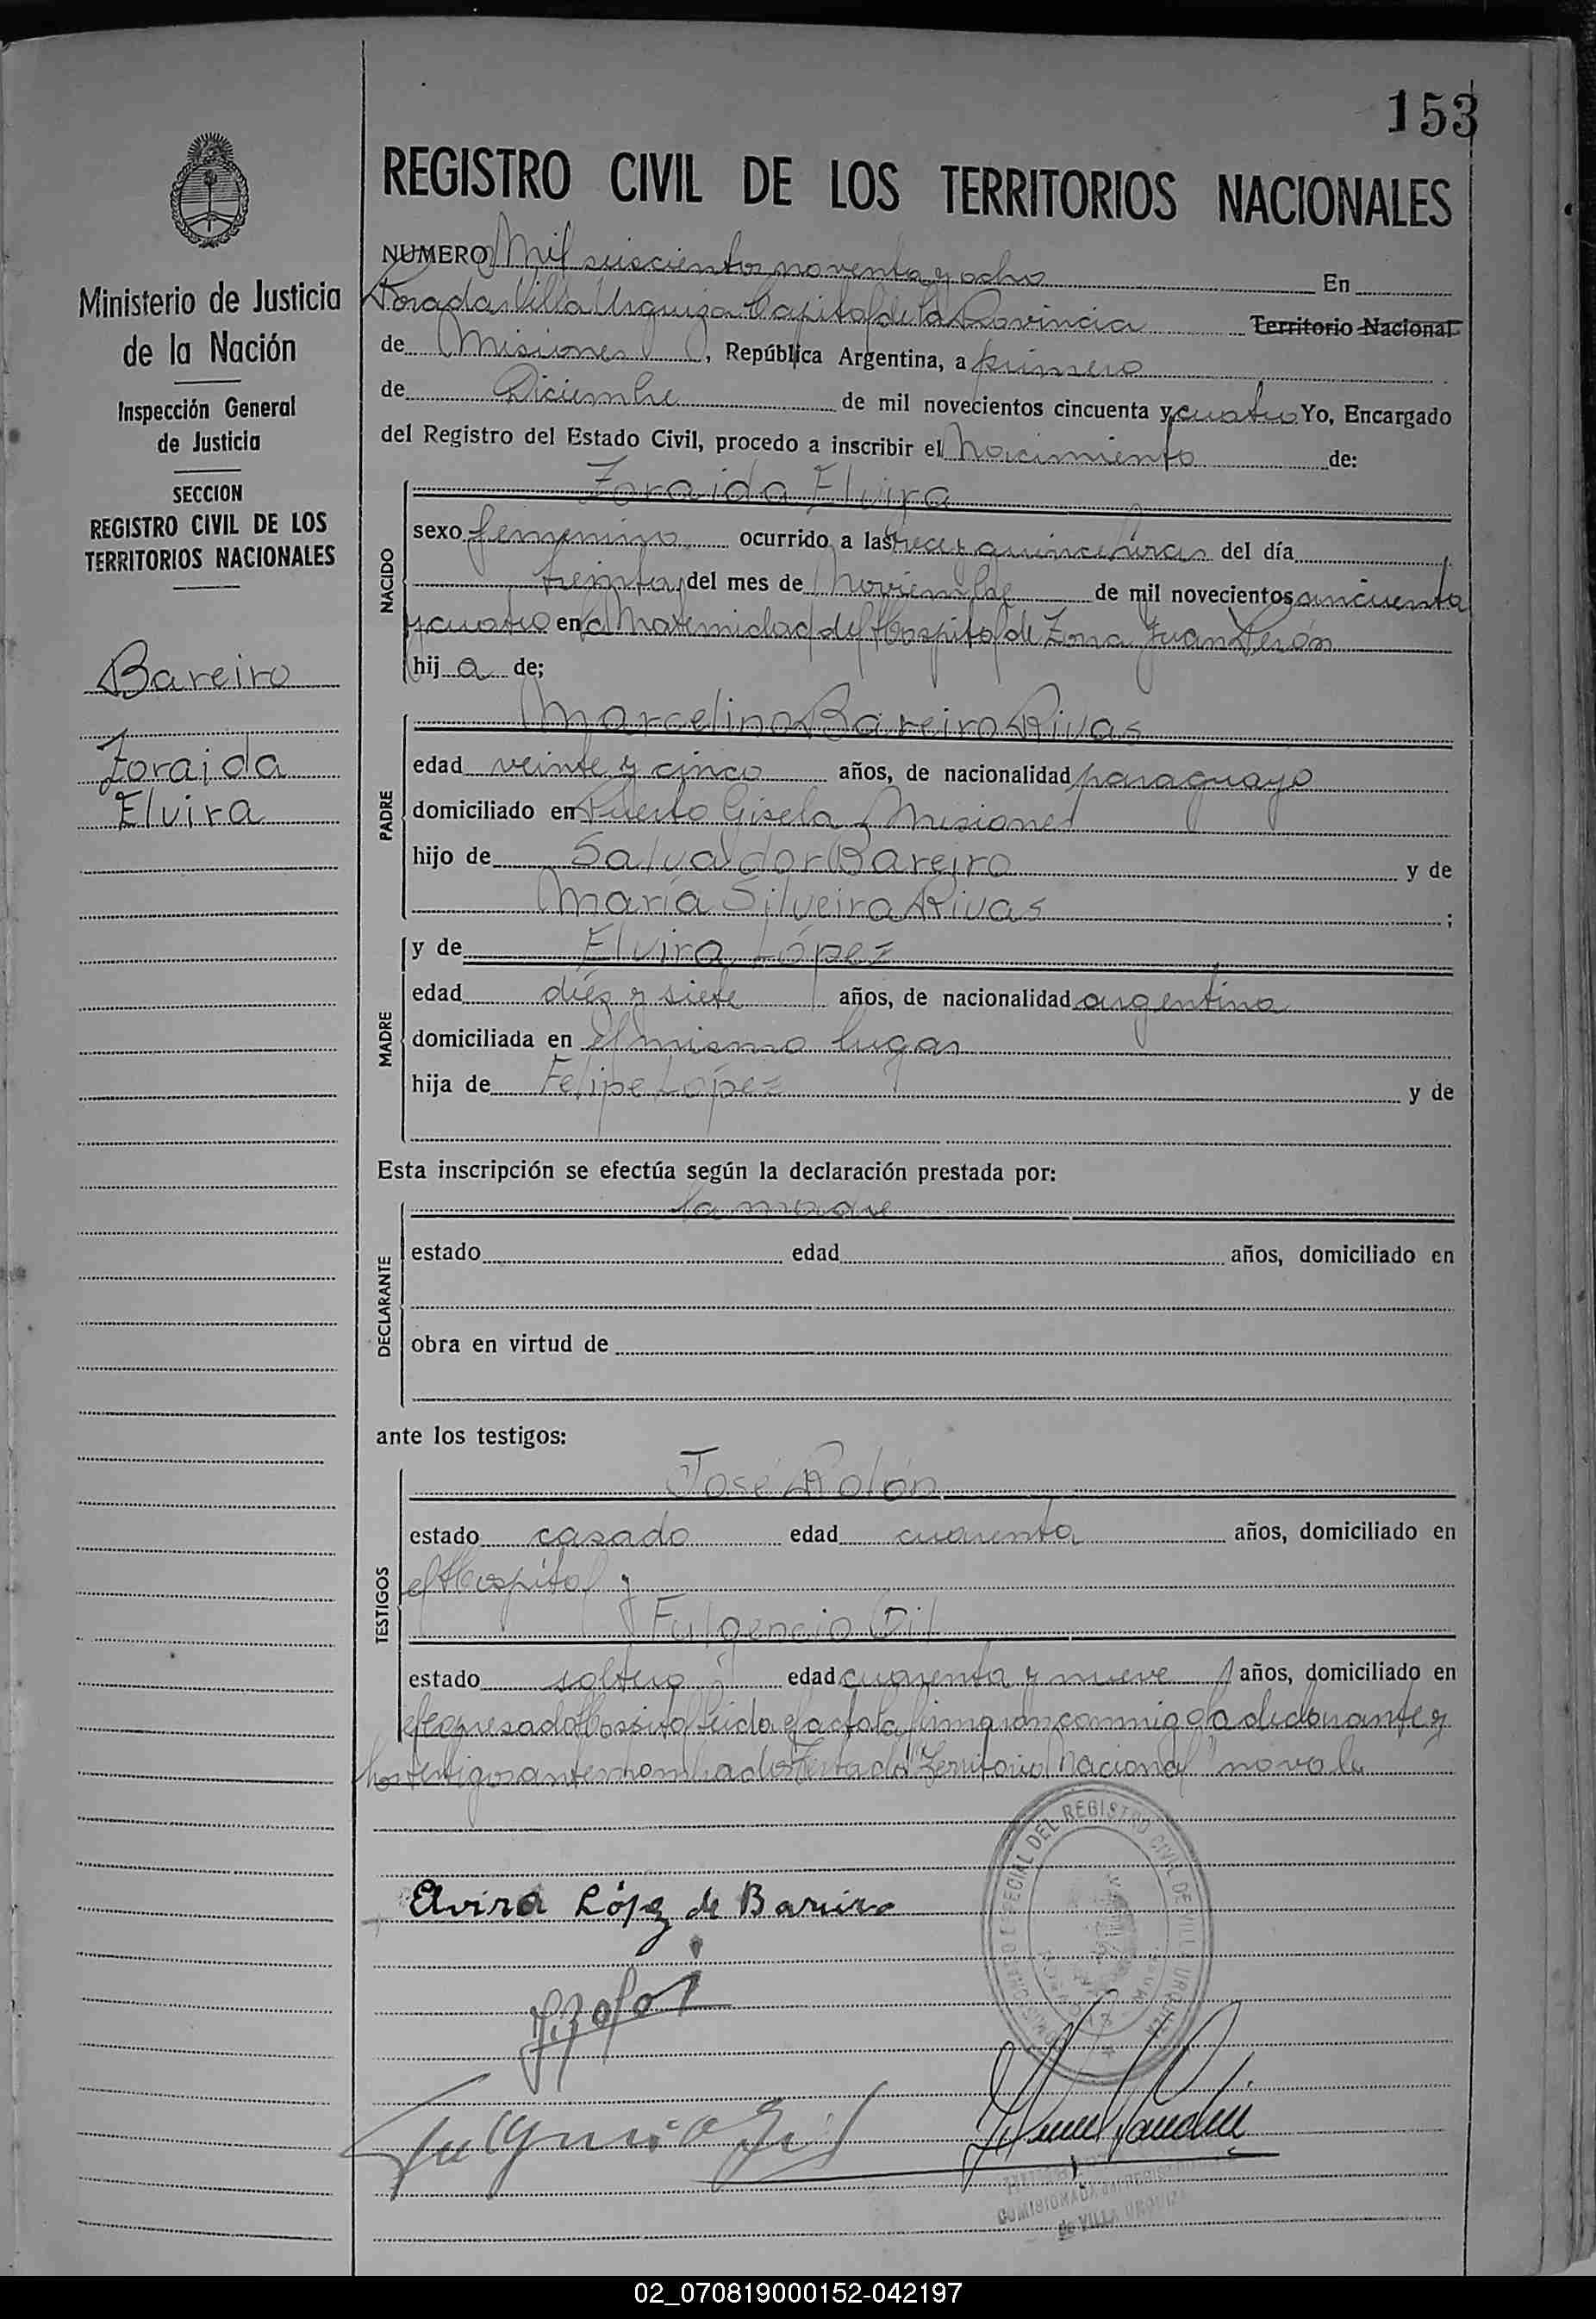 153
REGISTRO CIVIL DE LOS TERRITORIOS NACIONALES
Ministerio de Justicia
de la Nación
Inspección General
de Justicia
SECCION
REGISTRO CIVIL DE LOS
TERRITORIOS NACIONALES
Bareiro
Zoraida
Elvira
NUMERO Mil seiscientos noventa y ocho En
Posadas Villa Urquiza Capital de la Provincia Territorio Nacional
de Misiones, República Argentina, a primero
de Diciembre de mil novecientos cincuenta y cuatro Yo, Encargado
del Registro del Estado Civil, procedo a inscribir el Nacimiento de:
NACIDO
Zoraida Elvira
sexo femenino ocurrido a las trece y quince horas del día
treinta, del mes de Noviembre de mil novecientos cincuenta
y cuatro en la Maternidad del Hospital de Zona Juan Perón
hij a de;
PADRE
Marcelino Bareiro Rivas
edad veinte y cinco años, de nacionalidad paraguayo
domiciliado en Puerto Gisela Misiones
hijo de Salvador Bareiro y de
María Silveira Rivas ;
MADRE
y de Elvira López
edad diéz y siete años, de nacionalidad argentina
domiciliada en el mismo lugar
hija de Felipe López y de
Esta inscripción se efectúa según la declaración prestada por:
DECLARANTE
la madre
estado edad años, domiciliado en
obra en virtud de
ante los testigos:
TESTIGOS
José Rolón
estado casado edad cuarenta años, domiciliado en
el Hospital y
Fulgencio Gil
estado soltero edad cuarenta y nueve años, domiciliado en
el expresado Hospital leida el acta la firmaron conmigo la declarante y
los testigos antes nombrados Testado "Territorio Nacional" no vale
Elvira López de Bareiro
Fulgencio Gil
DEL REGISTRO CIVIL DE VILLA URQUIZA
COMISIONADA
de VILLA URQUIZA
02_070819000152-042197